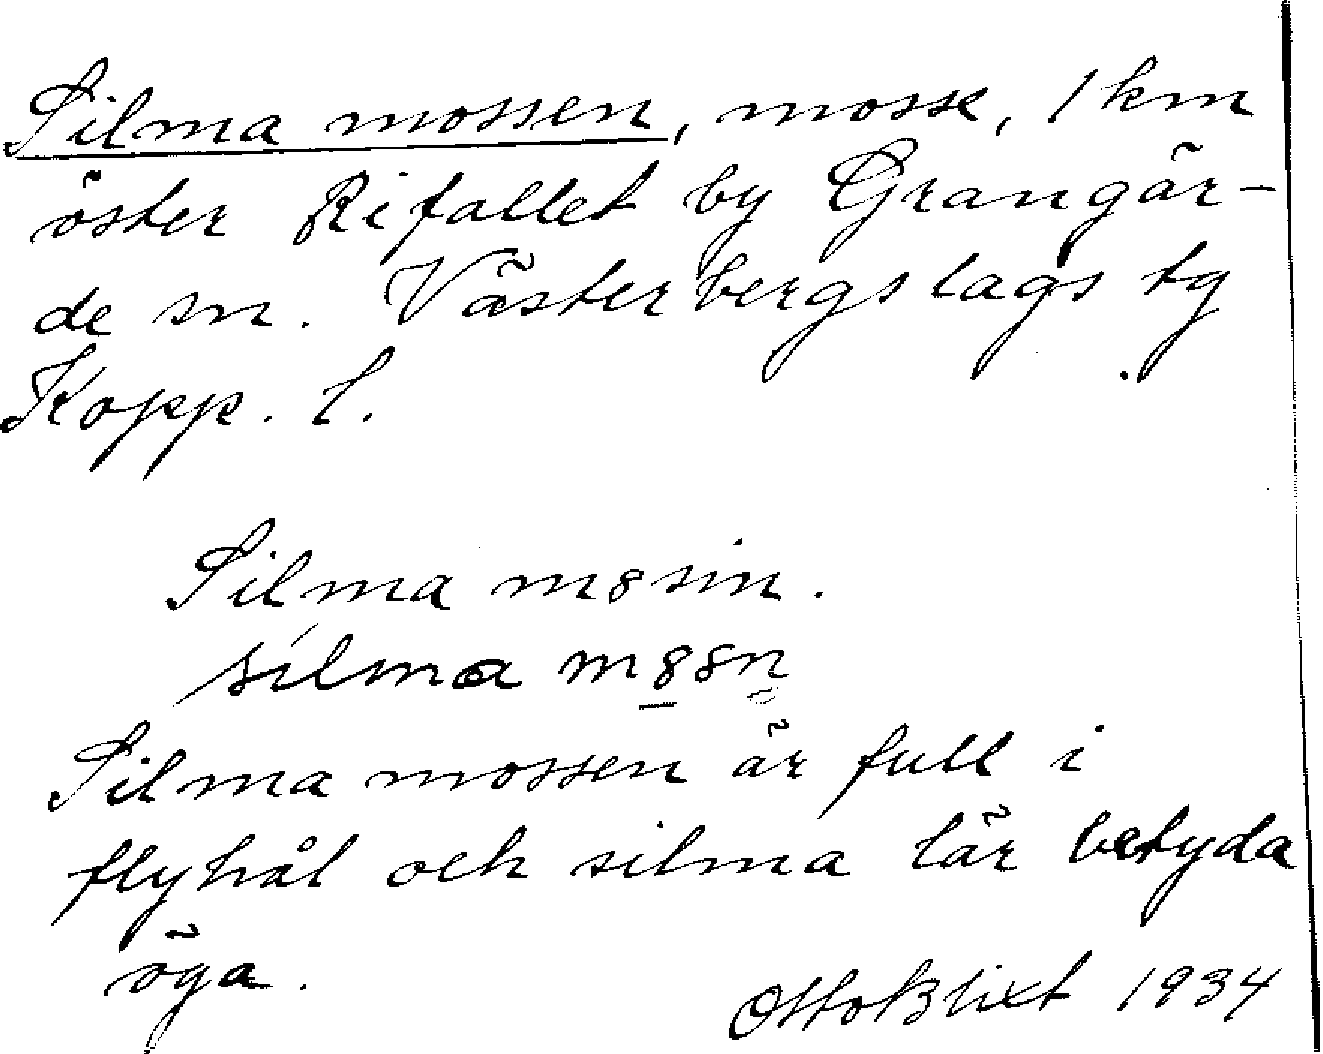 Silma mossen, mosse, 1 km
öster Rifallet by Grangär-
de sn. Västerbergslags tg
Kopp. l.
Silma m8sin.
silma m8sn̥
Silma mossen är full i
flyhål och silma lär betyda
öga.
Otto Blixt 1934